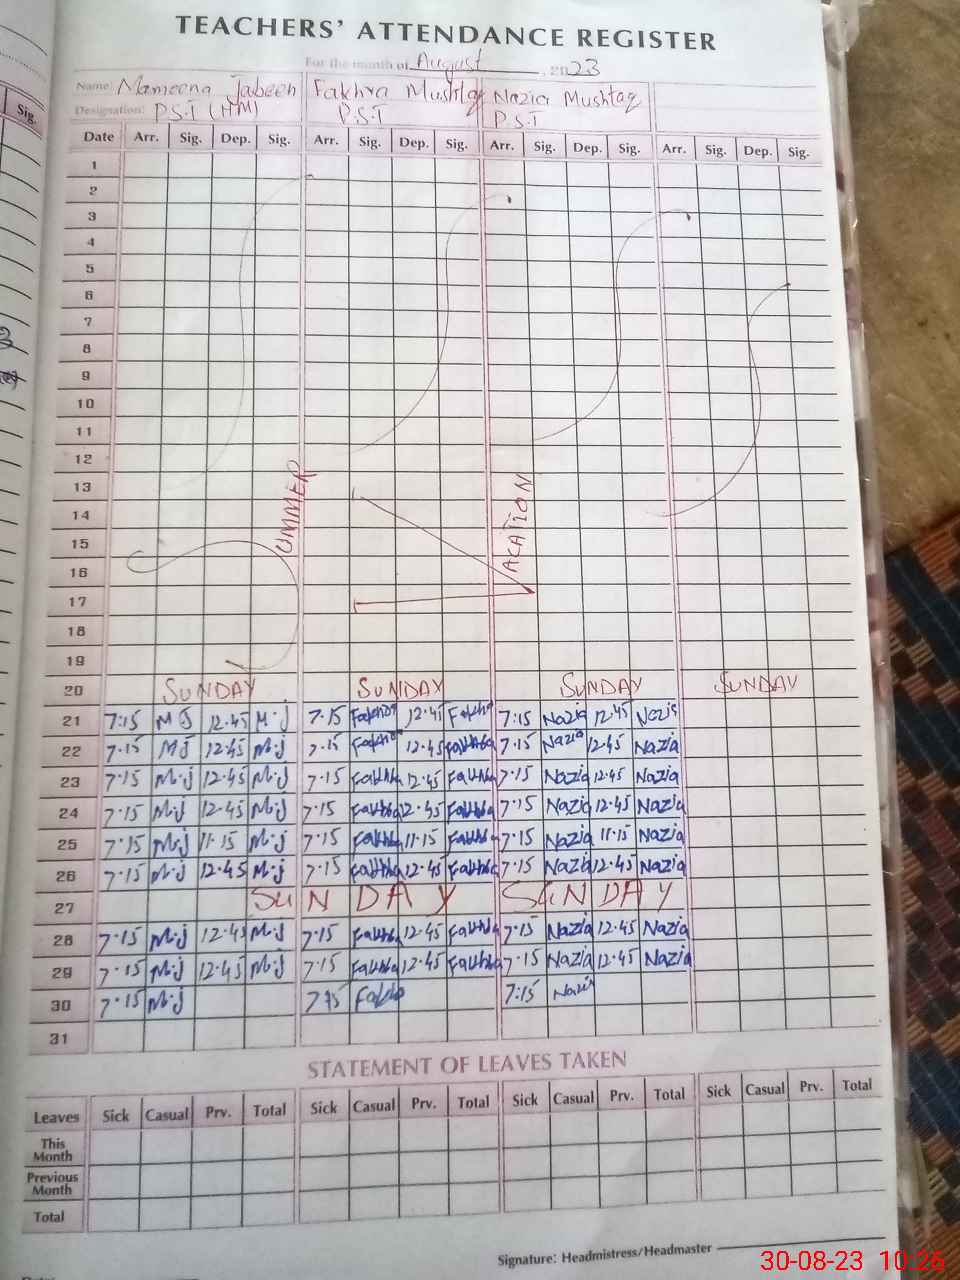 TEACHERS' ATTENDANCE REGISTER
For the month of August 2023
Name: Mameena Jabeen Fakhra Mushtaq Nazia Mushtaq
Designation: P.S.T (HM) P.S.T P.S.T
Date Arr. Sig. Dep. Sig. Arr. Sig. Dep. Sig. Arr. Sig. Dep. Sig. Arr. Sig. Dep. Sig.
1
2
3
4
5
6
7
8
9
10
11
12
13
14
15
16
17
18
19
SUMMER VACATION
20 SUNDAY SUNDAY SUNDAY SUNDAY
21 7:15 MJ 12.45 M.j 7.15 Fakhra 12.45 Fakhra 7:15 Nazia 12.45 Nazia
22 7.15 MJ 12.45 M.j 7.15 Fakhra 12.45 Fakhra 7.15 Nazia 12.45 Nazia
23 7.15 M.j 12.45 M.j 7.15 Fakhra 12.45 Fakhra 7.15 Nazia 12.45 Nazia
24 7.15 M.j 12.45 M.j 7.15 Fakhra 12.45 Fakhra 7.15 Nazia 12.45 Nazia
25 7.15 M.j 11.15 M.j 7.15 Fakhra 11.15 Fakhra 7.15 Nazia 11.15 Nazia
26 7.15 M.j 12.45 M.j 7.15 Fakhra 12.45 Fakhra 7.15 Nazia 12.45 Nazia
27 SUNDAY SUNDAY
28 7.15 M.j 12.45 M.j 7.15 Fakhra 12.45 Fakhra 7.15 Nazia 12.45 Nazia
29 7.15 M.j 12.45 M.j 7.15 Fakhra 12.45 Fakhra 7.15 Nazia 12.45 Nazia
30 7.15 M.j 7.15 Fakhra 7:15 Nazia
31
STATEMENT OF LEAVES TAKEN
Leaves Sick Casual Prv. Total Sick Casual Prv. Total Sick Casual Prv. Total Sick Casual Prv. Total
This Month
Previous Month
Total
Signature: Headmistress/Headmaster
30-08-23 10:26